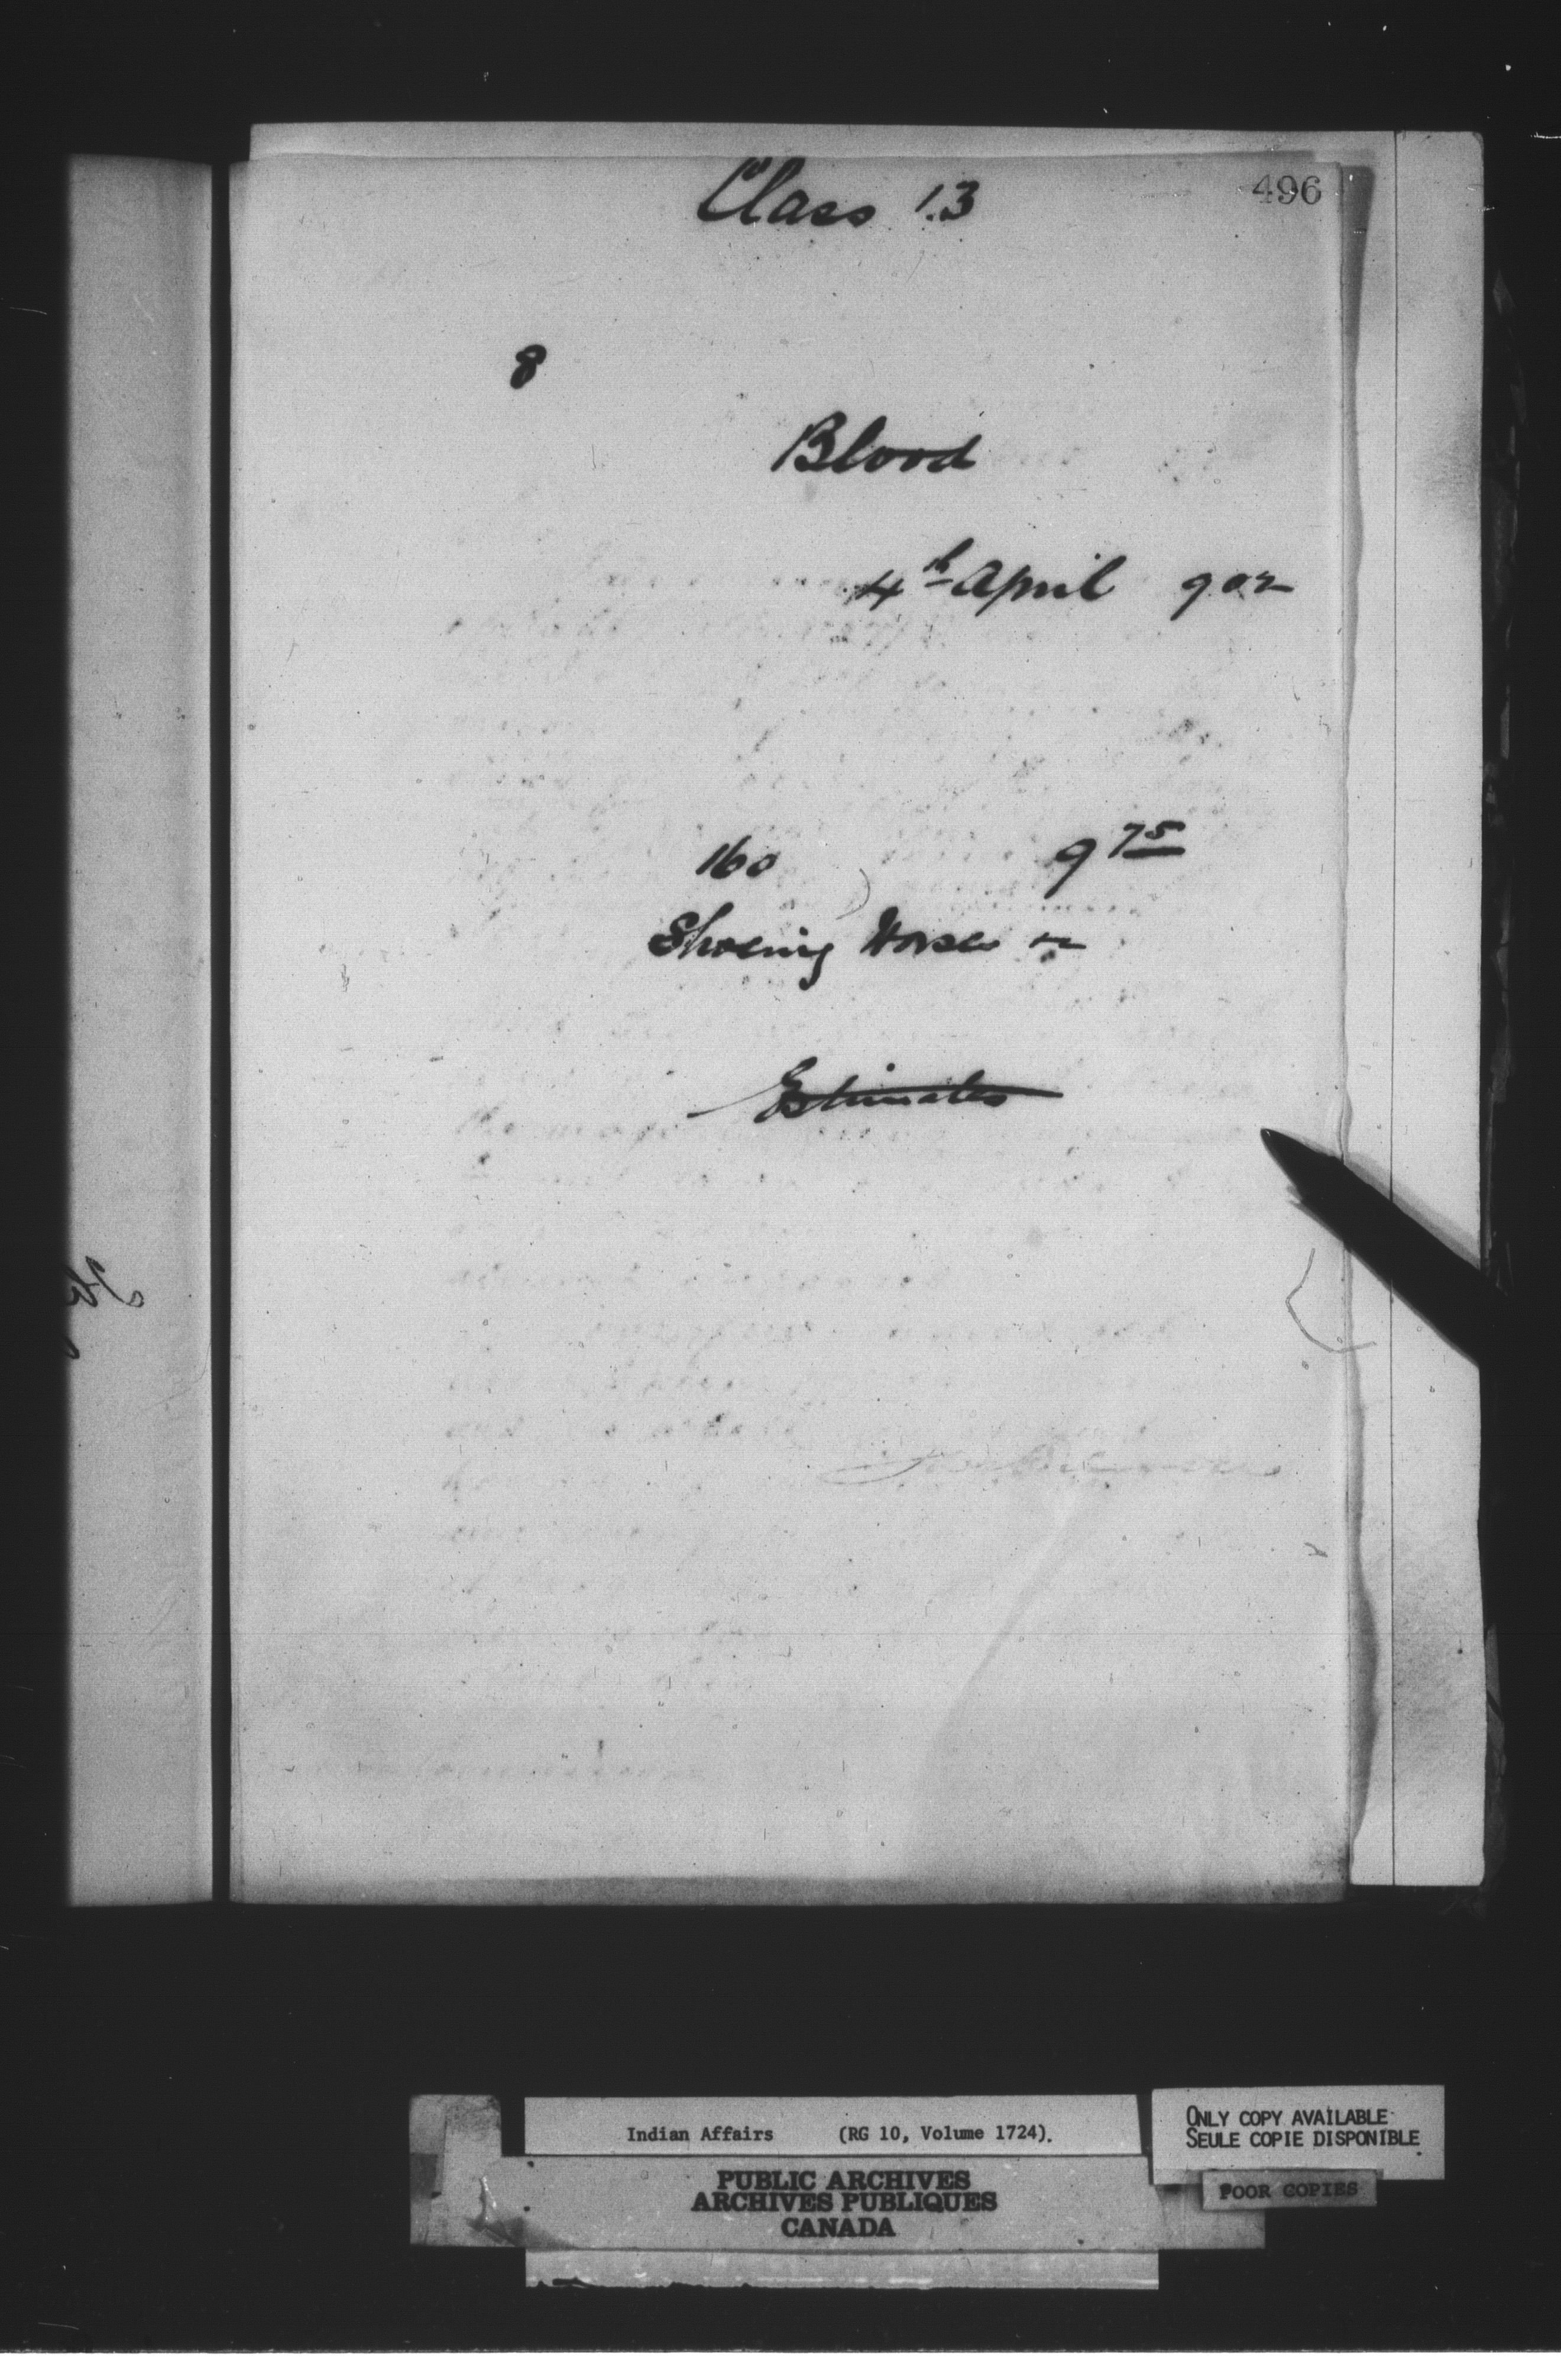 Class 13
496
8
Blood
4th April 902
160 9 75
Shoeing Horses
Estimates
Indian Affairs (RG 10, Volume 1724).
PUBLIC ARCHIVES
ARCHIVES PUBLIQUES
CANADA
ONLY COPY AVAILABLE
SEULE COPIE DISPONIBLE
POOR COPIES